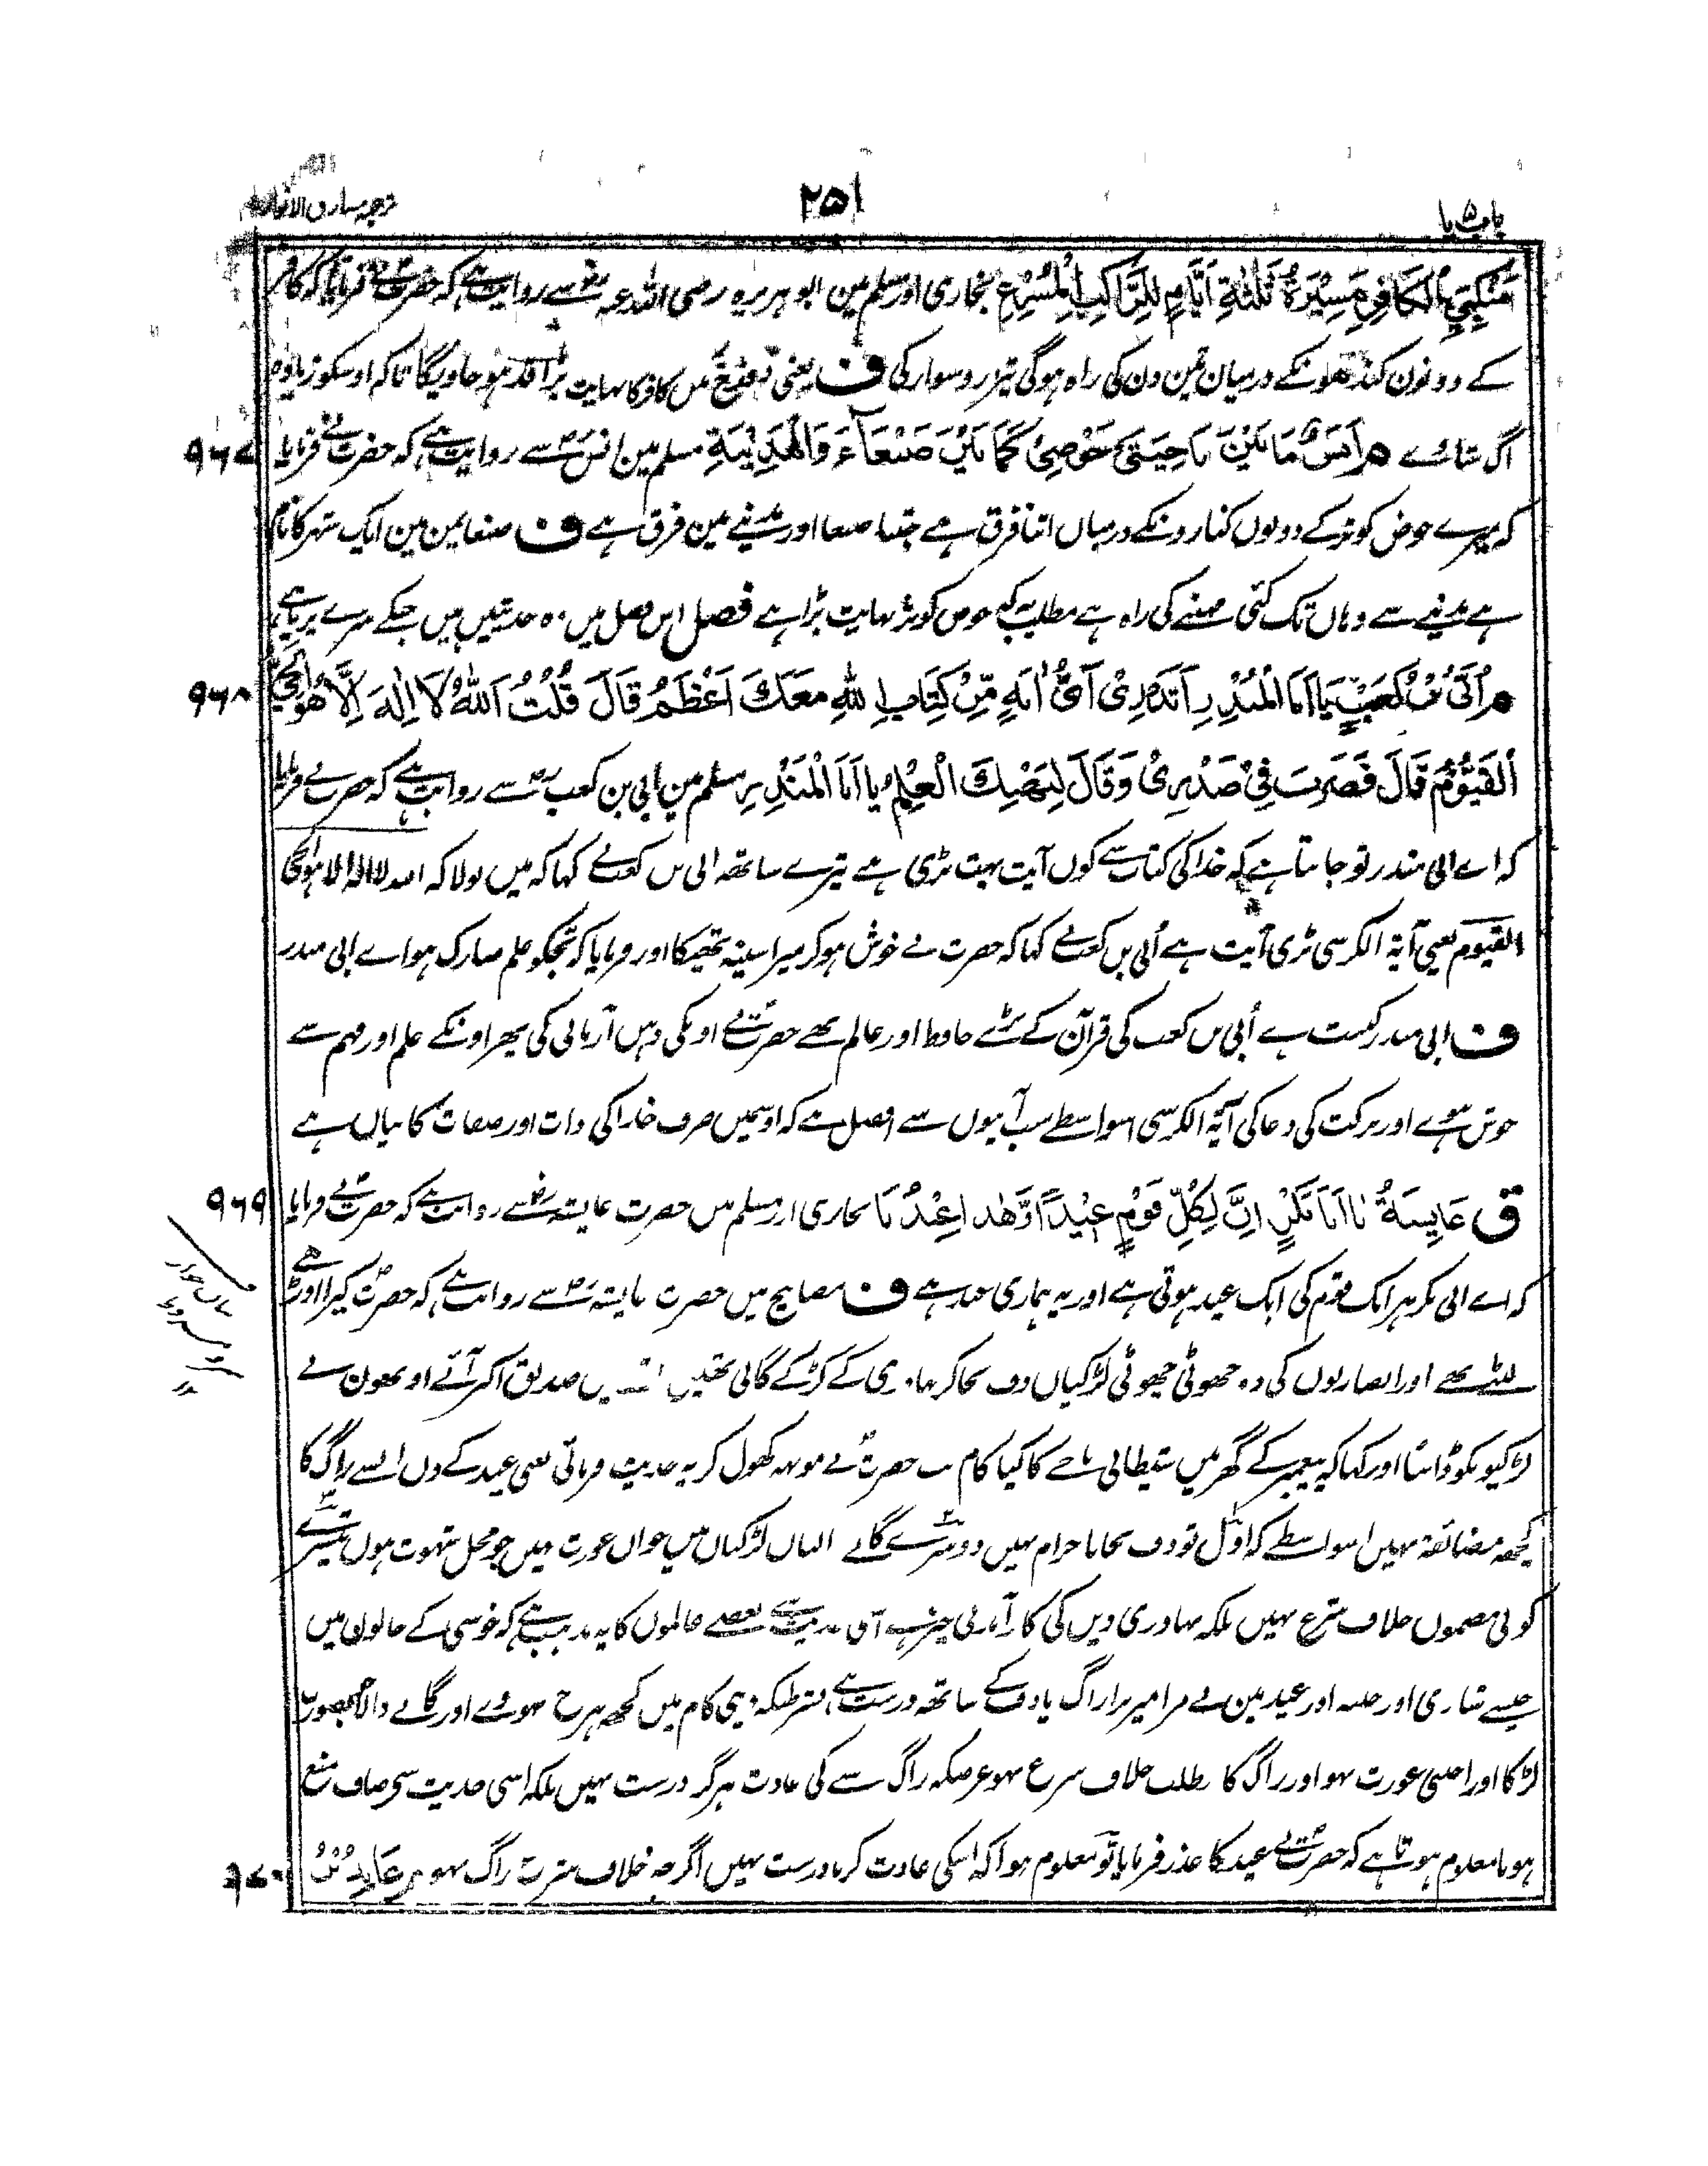 باب ۵ یا
۲۵۱
ترجمہ مشارق الانوار
مَنْكِبَيِ الْكَافِرِ مَسِيْرَةُ ثَلٰثَةِ اَيَّامٍ لِلرَّاكِبِ الْمُسْرِعِ بخاری اور مسلم مین ابو ہریرہ رضی اللہ عنہ سے روایت ہے کہ حضرت نے فرمایا کہ کافر
کے دونون کندھونکے درمیان تین دن کی راہ ہوگی تیز رو سوار کی ف یعنی دوزخ میں کافر کا نہایت بڑا قد ہو جاویگا تاکہ اوسکو زیادہ
اگ ستاوے م اَنَسٌ مَا بَيْنَ نَاحِيَتَيْ حَوْضِيْ كَمَا بَيْنَ صَنْعَآءَ وَالْمَدِيْنَةِ مسلم مین انس سے روایت ہے کہ حضرت نے فرمایا ۹۶۷
کہ میرے حوض کوثر کے دونوں کنارونکے درمیاں اتنا فرق ہے جتنا صنعا اور مدینے مین فرق ہے ف صنعا یمن مین ایک شہر کا نام
ہے مدینے سے وہاں تک کئی مہینے کی راہ ہے مطلب یہ کہ حوض کوثر نہایت بڑا ہے فصل اس فصل میں وہ حدیثیں ہیں جنکے سرے پر یا ہے
م اُبَيُّ بْنُ كَعْبٍ يَا اَبَا الْمُنْذِرِ اَتَدْرِيْ اَيُّ اٰيَةٍ مِّنْ كِتَابِ اللّٰهِ مَعَكَ اَعْظَمُ قَالَ قُلْتُ اَللّٰهُ لَا اِلٰهَ اِلَّا هُوَ الْحَيُّ ۹۶۸
الْقَيُّوْمُ قَالَ فَضَرَبَ فِيْ صَدْرِيْ وَقَالَ لِيَهْنِكَ الْعِلْمُ يَا اَبَا الْمُنْذِرِ مسلم مین اُبی بن کعب سے روایت ہے کہ حضرت نے فرمایا
کہ اے ابی منذر تو جانتا ہے کہ خدا کی کتاب سے کون آیت بہت بڑی ہے تیرے ساتھ ابی بن کعب نے کہا کہ میں بولا کہ اللہ لا الہ الا ہو الحی
القیوم یعنی آیۃ الکرسی بڑی آیت ہے اُبی بن کعب نے کہا کہ حضرت نے خوش ہو کر میرا سینہ تھپکا اور فرمایا کہ تجکو علم مبارک ہو اے ابی منذر
ف ابی منذر کنیت ہے اُبی بن کعب کی قرآن کے بڑے حافظ اور عالم تھے حضرت نے اونکی ذہن آزمائی کی پھر اونکے علم اور فہم سے
خوش ہوے اور برکت کی دعا کی آیۃ الکرسی اسواسطے سب آیتوں سے افضل ہے کہ اوسمیں صرف خدا کی ذات اور صفات کا بیاں ہے
ق عَايِشَةُ يَا اَبَا بَكْرٍ اِنَّ لِكُلِّ قَوْمٍ عِيْدًا وَّهٰذَا عِيْدُنَا بخاری اور مسلم میں حضرت عایشہ سے روایت ہے کہ حضرت نے فرمایا ۹۶۹
کہ اے ابی بکر ہر ایک قوم کی ایک عید ہوتی ہے اور یہ ہماری عید ہے ف مصابیح میں حضرت عایشہ سے روایت ہے کہ حضرت کپڑا اوڑھے
لیٹے تھے اور انصاریوں کی دو چھوٹی چھوٹی لڑکیاں دف بجا کر بہادری کے کڑکے گاتی تھیں صدیق اکبر آئے اونھون نے
لڑکیونکو ڈانٹا اور کہا کہ پیغمبر کے گھر میں شیطانی باجے کا کیا کام تب حضرت نے مونہہ کھول کر یہ حدیث فرمائی یعنی عید کے دن ایسے راگ کا
کچھ مضائقہ نہیں اسواسطے کہ اوّل تو دف بجانا حرام نہیں دوسرے گانے والیاں لڑکیاں ہیں جواں عورت نہیں جو محل شہوت ہوں تیسرے
کوئی مضمون خلاف شرع نہیں بلکہ بہادری دین کی کارآمدنی چیز ہے اس حدیث سے بعضے عالموں کا یہ مذہب ہے کہ خوشی کے حالون میں
جیسے شادی اور ختنہ اور عیدین بے مزامیر نرا راگ یا دف کے ساتھ درست ہے بشرطیکہ دینی کام میں کچھ ہرج نہووے اور گانے والا خوبصورت
لڑکا اور اجنبی عورت نہو اور راگ کا مطلب خلاف شرع نہو غرضکہ راگ سننے کی عادت ہرگز درست نہیں بلکہ اسی حدیث سے صاف منع
ہونا معلوم ہوتا ہے کہ حضرت نے عید کا عذر فرمایا تو معلوم ہوا کہ اسکی عادت کرنا درست نہیں اگرچہ خلاف شرع راگ نہو م عَايِذُ بْنُ ۹۷۰